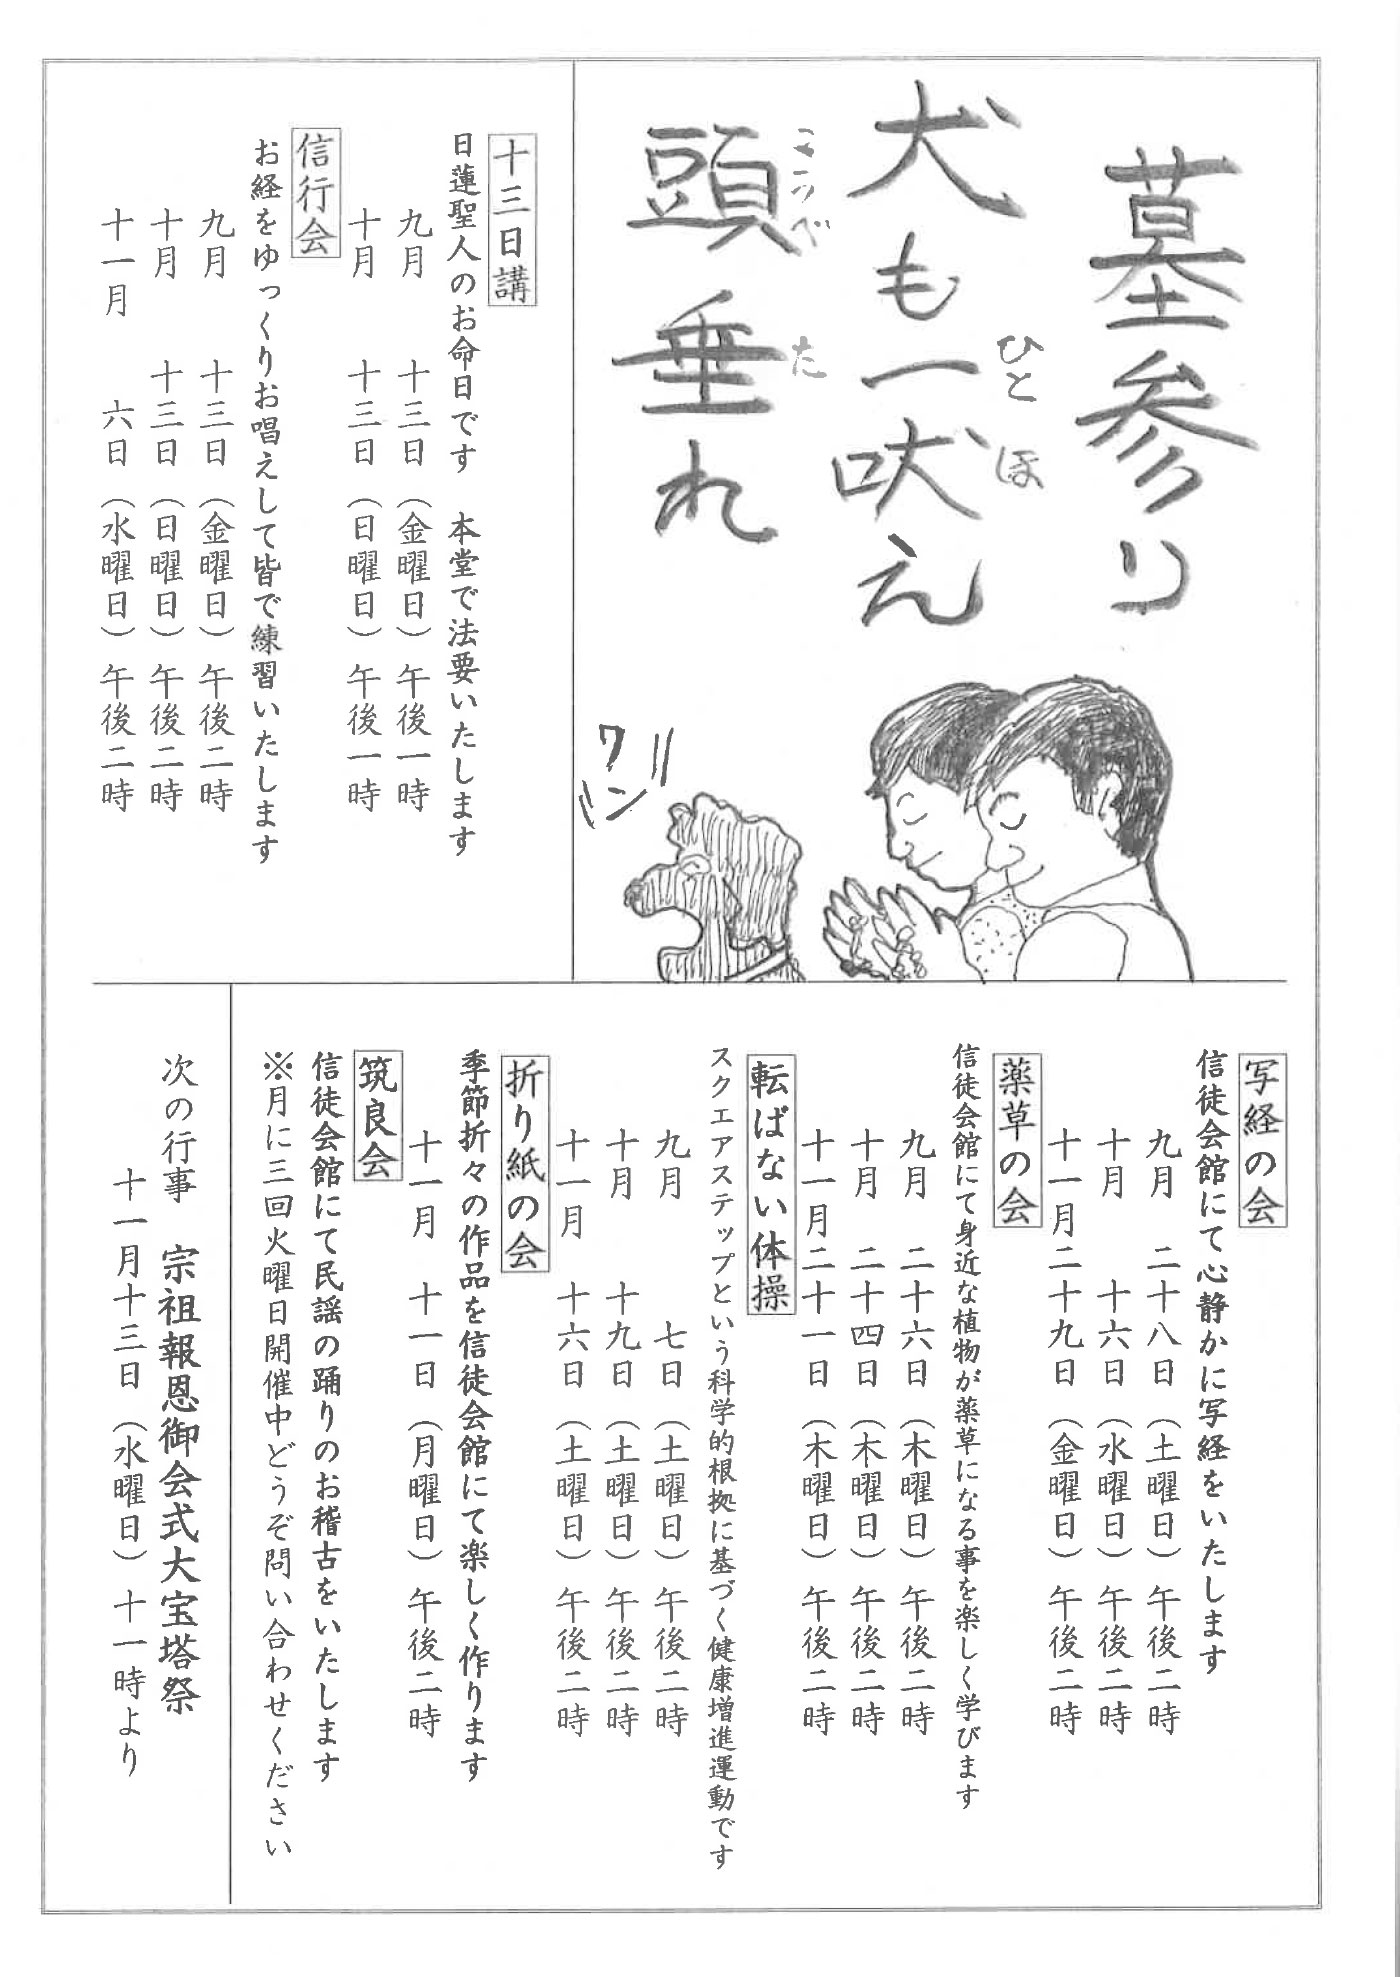 墓参り
犬も一吠え
ひと ほ
頭垂れ
こうべ た
ワン
十三日講
日蓮聖人のお命日です 本堂で法要いたします
九月 十三日（金曜日）午後一時
十月 十三日（日曜日）午後一時
信行会
お経をゆっくりお唱えして皆で練習いたします
九月 十三日（金曜日）午後二時
十月 十三日（日曜日）午後二時
十一月 六日（水曜日）午後二時
写経の会
信徒会館にて心静かに写経をいたします
九月 二十八日（土曜日）午後二時
十月 十六日（水曜日）午後二時
十一月二十九日（金曜日）午後二時
薬草の会
信徒会館にて身近な植物が薬草になる事を楽しく学びます
九月 二十六日（木曜日）午後二時
十月 二十四日（木曜日）午後二時
十一月二十一日（木曜日）午後二時
転ばない体操
スクエアステップという科学的根拠に基づく健康増進運動です
九月 七日（土曜日）午後二時
十月 十九日（土曜日）午後二時
十一月 十六日（土曜日）午後二時
折り紙の会
季節折々の作品を信徒会館にて楽しく作ります
十一月 十一日（月曜日）午後二時
筑良会
信徒会館にて民謡の踊りのお稽古をいたします
※月に三回火曜日開催中どうぞ問い合わせください
次の行事 宗祖報恩御会式大宝塔祭
十一月十三日（水曜日）十一時より